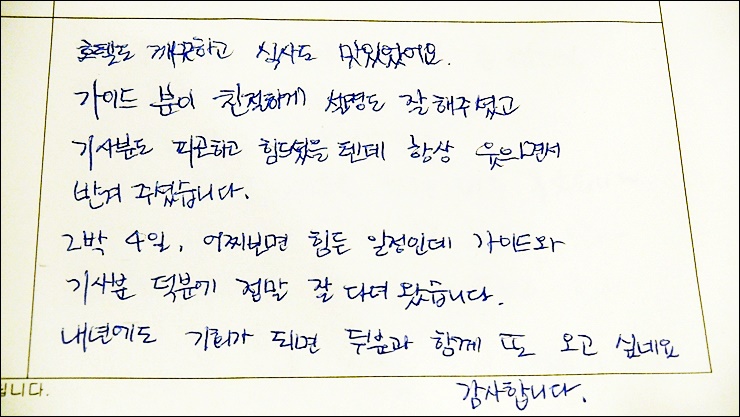 호텔도 깨끗하고 식사도 맛있었어요.
가이드 분이 친절하게 설명도 잘해주셨고
기사분도 피곤하고 힘드셨을 텐데 항상 웃으면서
반겨 주셨습니다.
2박 4일, 어찌보면 힘든 일정인데 가이드와
기사분 덕분에 정말 잘 다녀 왔습니다.
내년에도 기회가 되면 두분과 함께 또 오고 싶네요
감사합니다.
니다.